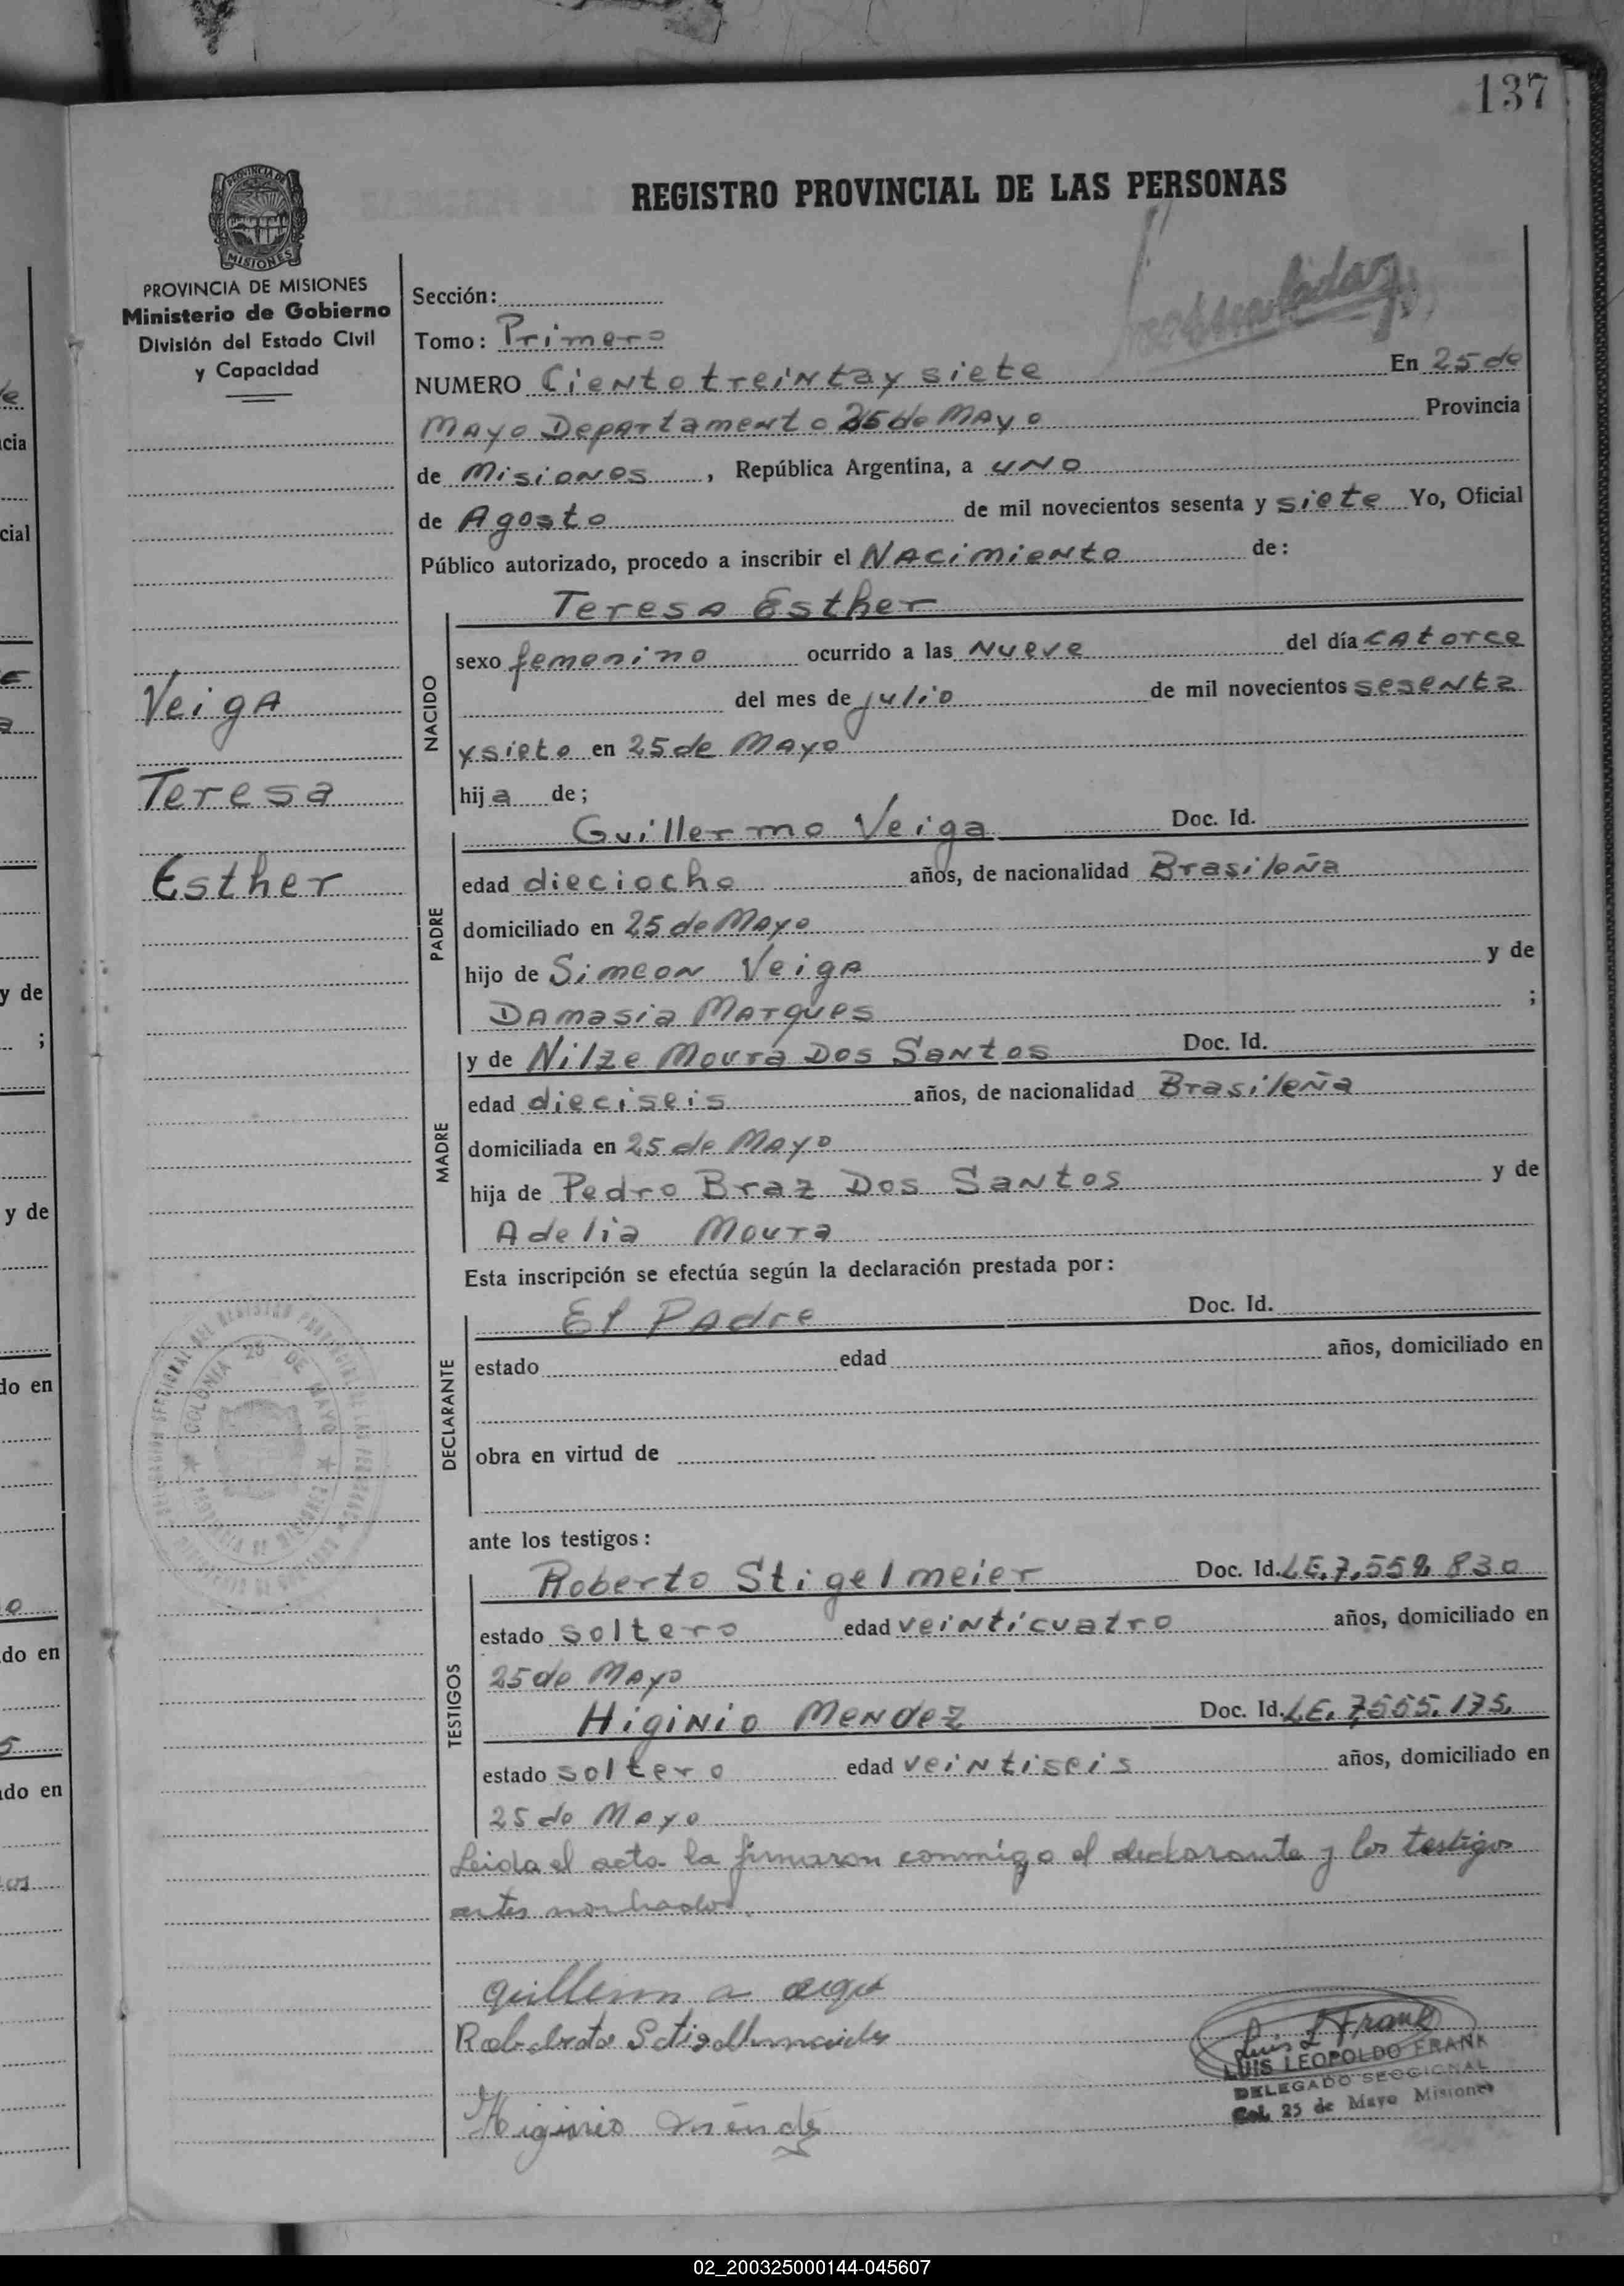 137
REGISTRO PROVINCIAL DE LAS PERSONAS
PROVINCIA DE
MISIONES
PROVINCIA DE MISIONES
Ministerio de Gobierno
División del Estado Civil
y Capacidad
Veiga
Teresa
Esther
Sección:
Tomo: Primero
NUMERO Ciento treinta y siete En 25 de
Mayo Departamento 25 de Mayo Provincia
de Misiones, República Argentina, a uno
de Agosto de mil novecientos sesenta y siete Yo, Oficial
Público autorizado, procedo a inscribir el Nacimiento de:
NACIDO
Teresa Esther
sexo femenino ocurrido a las Nueve del día catorce
del mes de julio de mil novecientos sesenta
y siete en 25 de Mayo
hija de;
PADRE
Guillermo Veiga Doc. Id.
edad dieciocho años, de nacionalidad Brasileña
domiciliado en 25 de Mayo
hijo de Simeon Veiga y de
Damasia Marques ;
MADRE
y de Nilze Moura Dos Santos Doc. Id.
edad dieciseis años, de nacionalidad Brasileña
domiciliada en 25 de Mayo
hija de Pedro Braz Dos Santos y de
Adelia Moura
Esta inscripción se efectúa según la declaración prestada por:
DECLARANTE
El Padre Doc. Id.
estado edad años, domiciliado en
obra en virtud de
ante los testigos:
TESTIGOS
Roberto Stigelmeier Doc. Id. LE. 7.559.830
estado soltero edad veinticuatro años, domiciliado en
25 de Mayo
Higinio Mendez Doc. Id. LE. 7.555.175.
estado soltero edad veintiseis años, domiciliado en
25 de Mayo
Leida el acta la firmaron conmigo el declarante y los testigos
antes nombrados.
Higinio Méndez
Luis L Frank
LUIS LEOPOLDO FRANK
DELEGADO SECCIONAL
Col. 25 de Mayo Misiones
COLONIA 25 DE MAYO
02_200325000144-045607